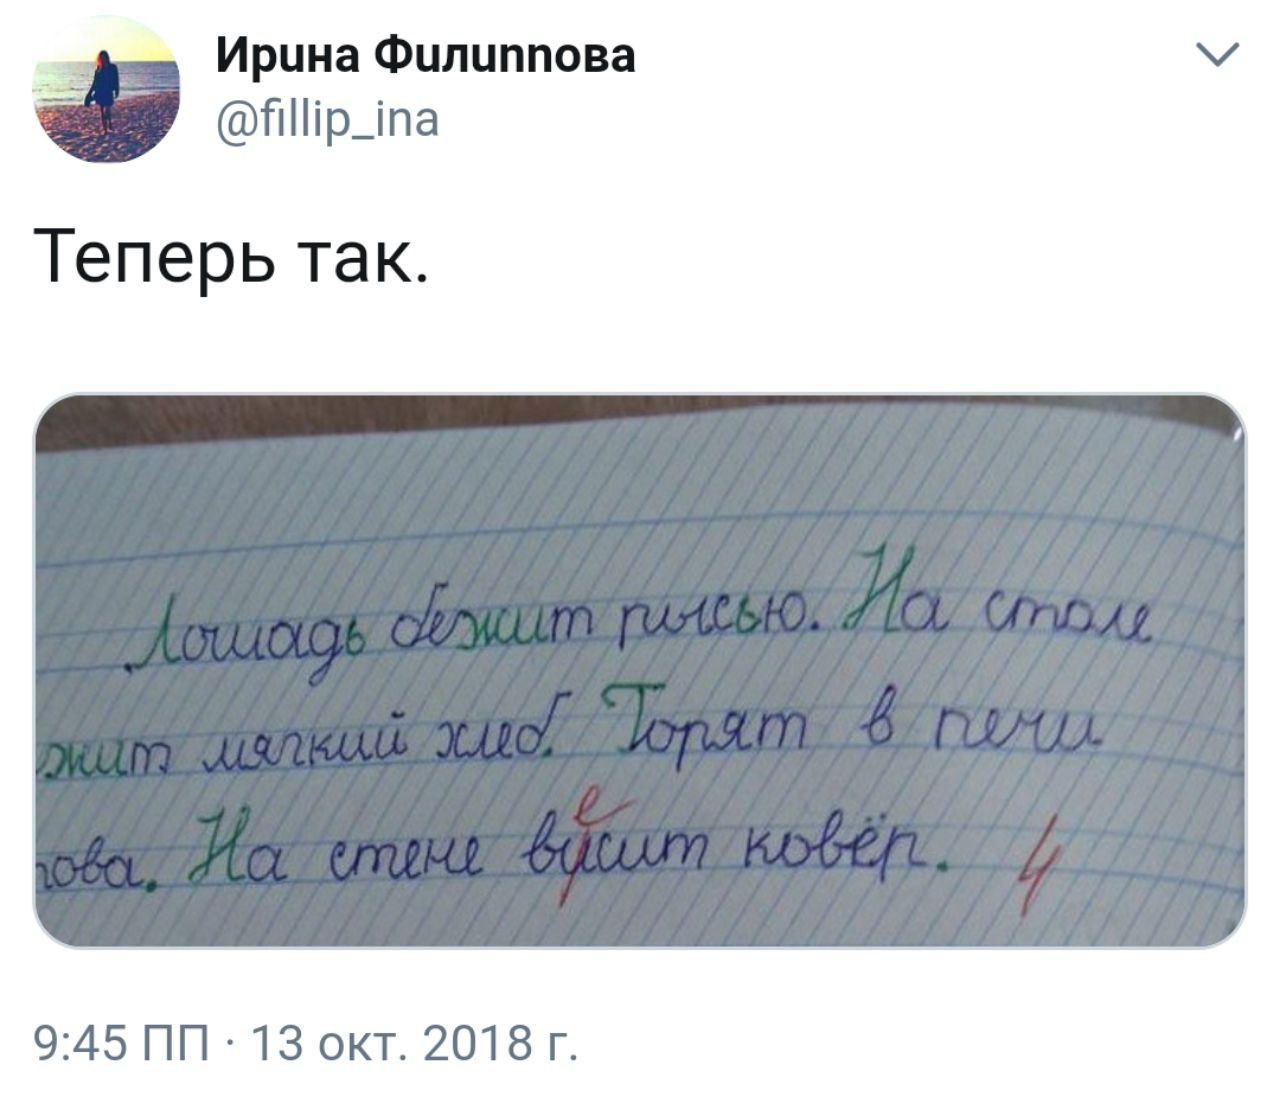 Ирина Филиппова
@fillip_ina
Теперь так.
Лошадь бежит рысью. На столе
жит мягкий хлеб. Горят в печи
рова. На стене
е
висит ковёр. 4
9:45 ПП · 13 окт. 2018 г.